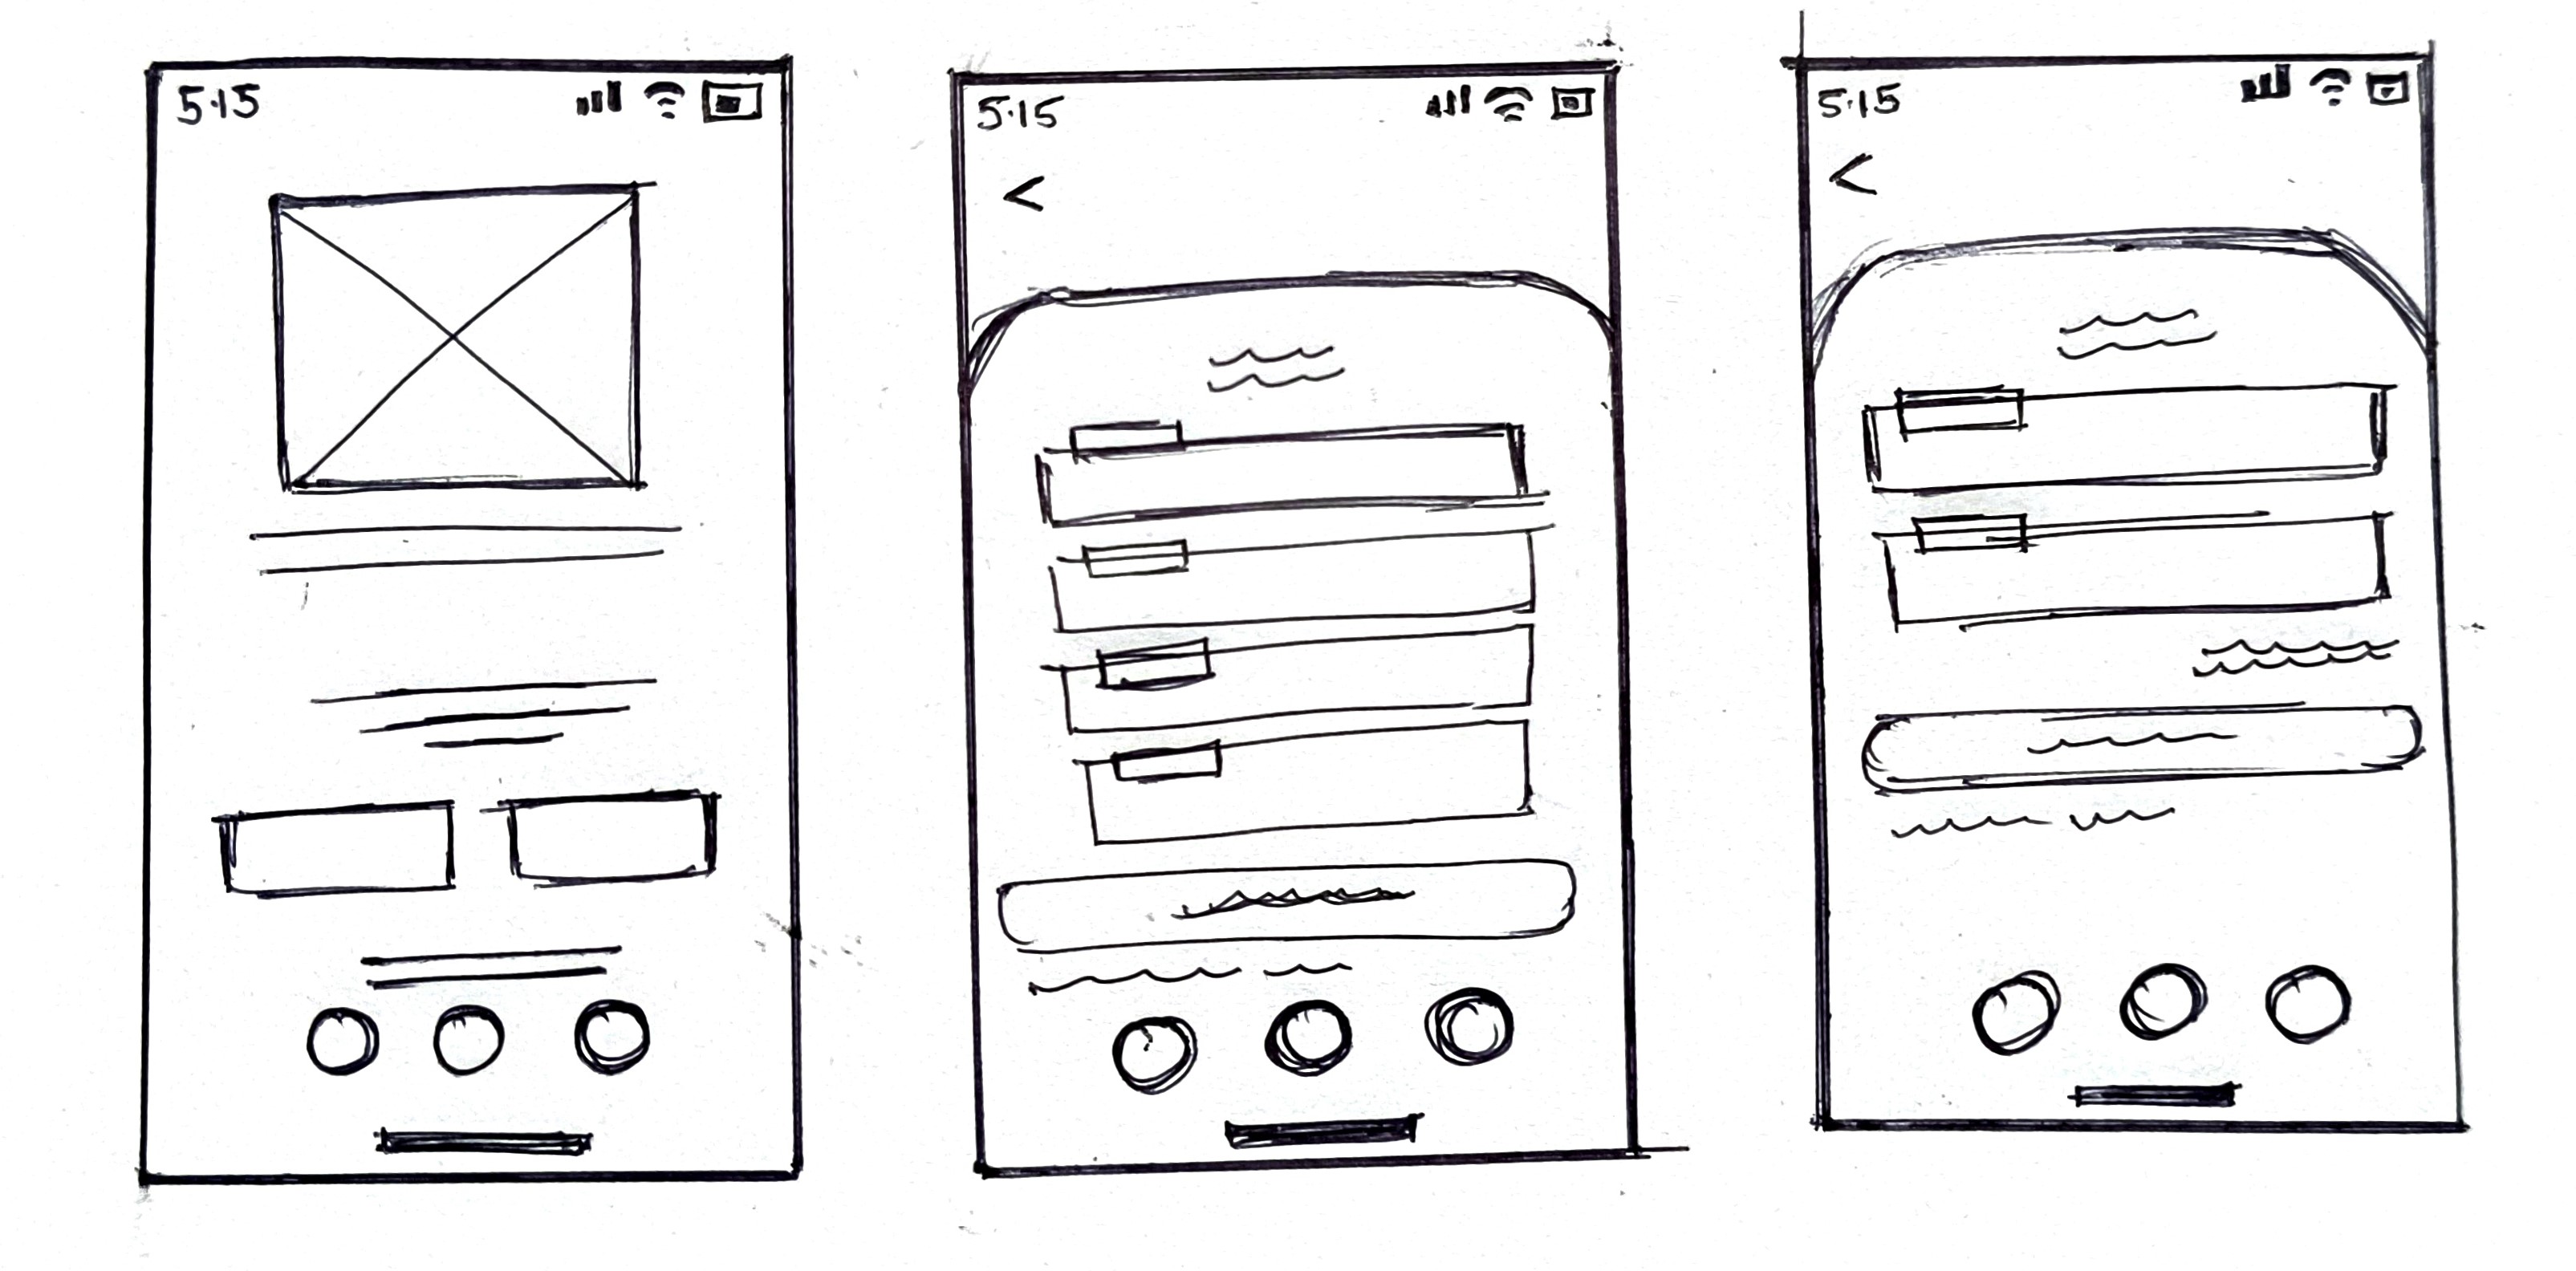 5:15
5:15
5:15